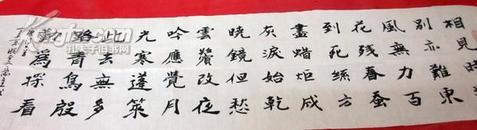 相見時
別亦難東
風無力百
花残春蚕
到死絲方
盡蜡炬成
灰淚始乾
曉鏡但愁
雲鬢改夜
吟應覺月
光寒蓬萊
此去無多
路青鳥殷
勤為探看